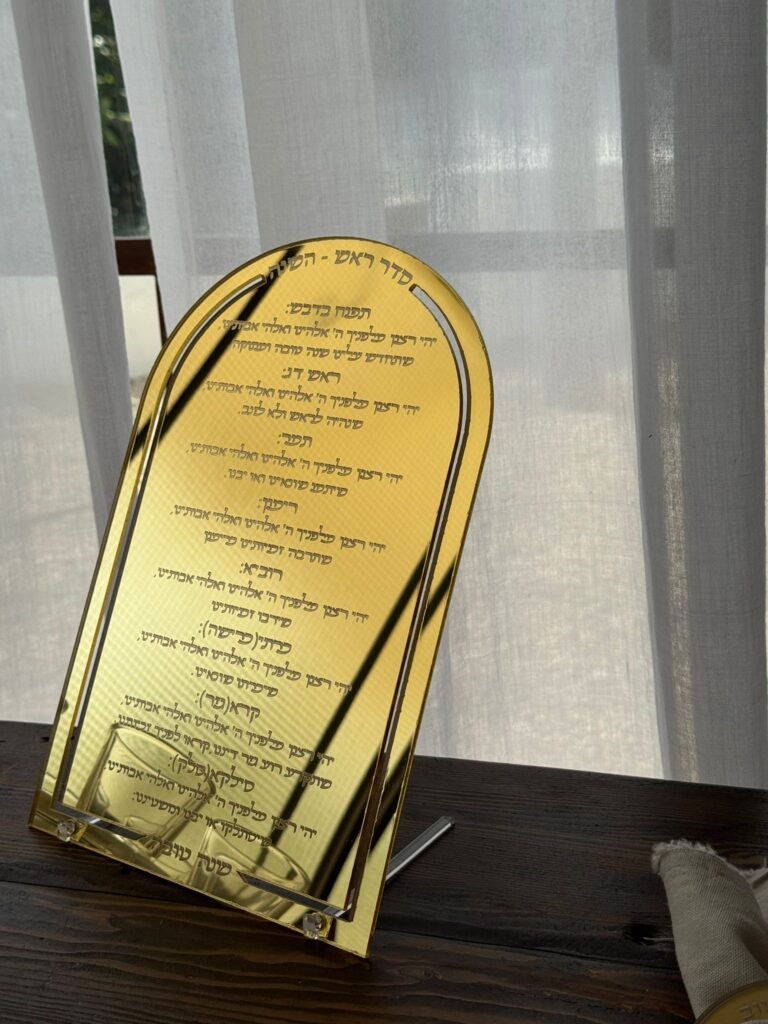 סדר ראש - השנה
תפוח בדבש:
יהי רצון מלפניך ה' אלהינו ואלהי אבותינו,
שתחדש עלינו שנה טובה ומתוקה
ראש דג:
יהי רצון מלפניך ה' אלהינו ואלהי אבותינו,
שנהיה לראש ולא לזנב.
תמר:
יהי רצון מלפניך ה' אלהינו ואלהי אבותינו,
שיתמו שונאינו ואויבנו.
רימון:
יהי רצון מלפניך ה' אלהינו ואלהי אבותינו,
שתרבה זכיותינו כרימון
רוביא:
יהי רצון מלפניך ה' אלהינו ואלהי אבותינו,
שירבו זכיותינו
כרתי(כרישה):
יהי רצון מלפניך ה' אלהינו ואלהי אבותינו,
שיכרתו שונאינו.
קרא(מר):
יהי רצון מלפניך ה' אלהינו ואלהי אבותינו,
שתקרע רוע גזר דיננו,יקראו לפניך זכיותינו
סילקא(סלק):
יהי רצון מלפניך ה' אלהינו ואלהי אבותינו,
שיסתלקו אויבנו ומשטינינו:
שנה טובה